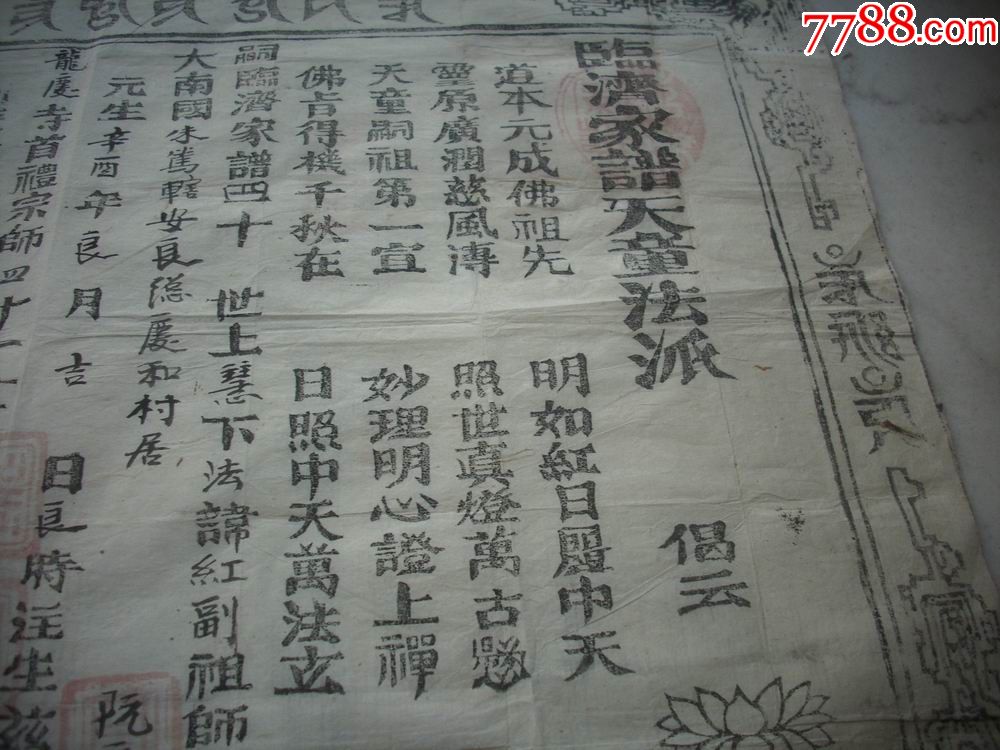 7788.com
臨濟家譜天童法派
偈云
道本元成佛祖先 明如紅日麗中天
靈原廣潤慈風溥 照世真燈萬古懸
天童嗣祖第一宣 妙理明心證上禪
佛言得機千秋在 日照中天萬法玄
嗣臨濟家譜四十 世上慧下法諱紅副祖師
大南國朱篤轄安良總慶和村居
元生辛酉年良月吉 日良時注生茲
龍慶寺首禮宗師四十
阮